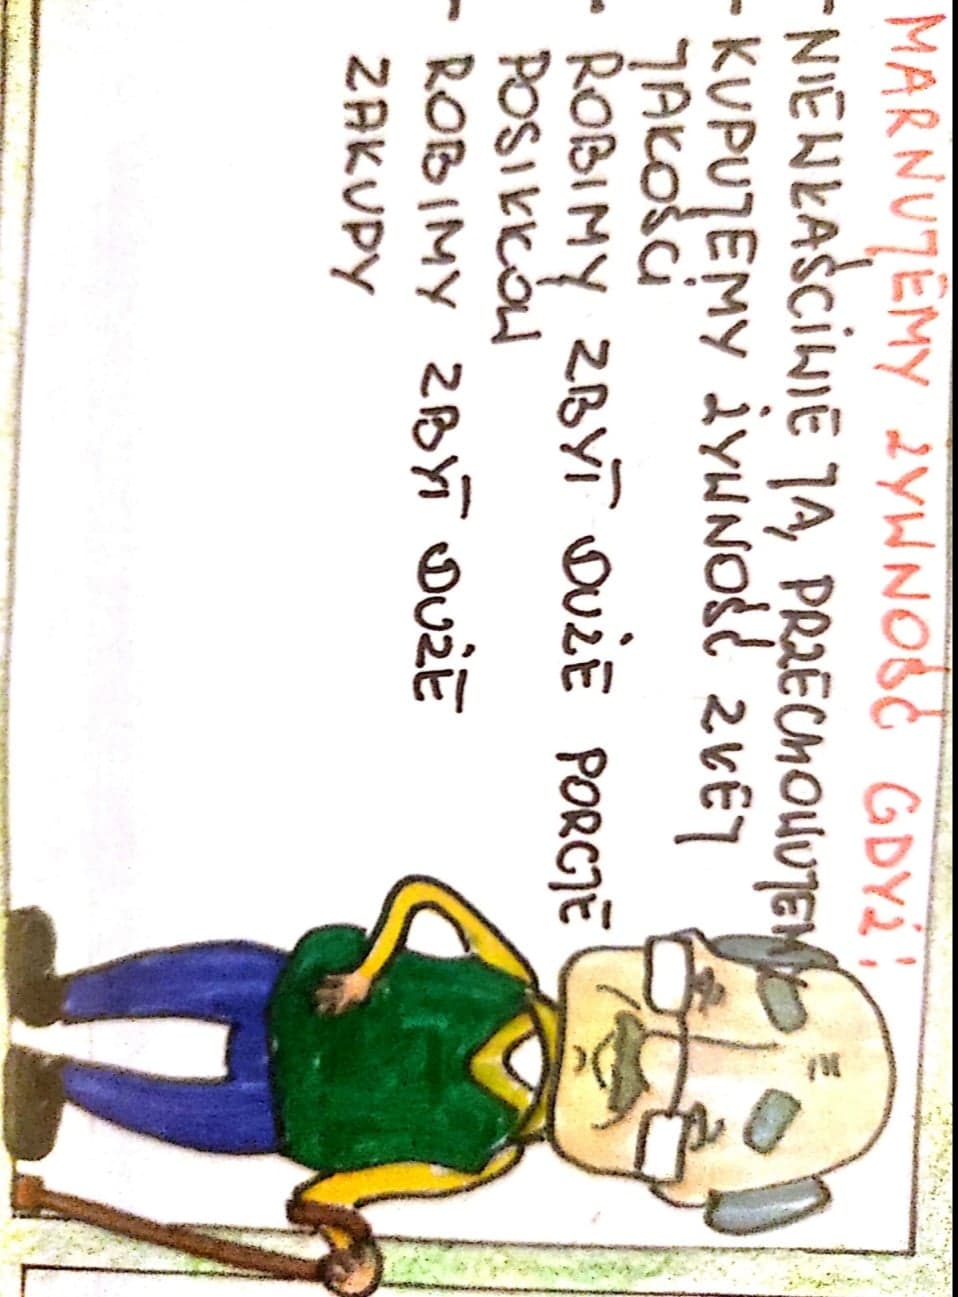 MARNUJEMY ŻYWNOŚĆ GDYŻ:
- NIEWŁAŚCIWIE JĄ PRZECHOWUJEMY
- KUPUJEMY ŻYWNOŚĆ ZŁEJ
JAKOŚCI
- ROBIMY ZBYT DUŻE PORCJE
POSIŁKÓW
- ROBIMY ZBYT DUŻE
ZAKUPY